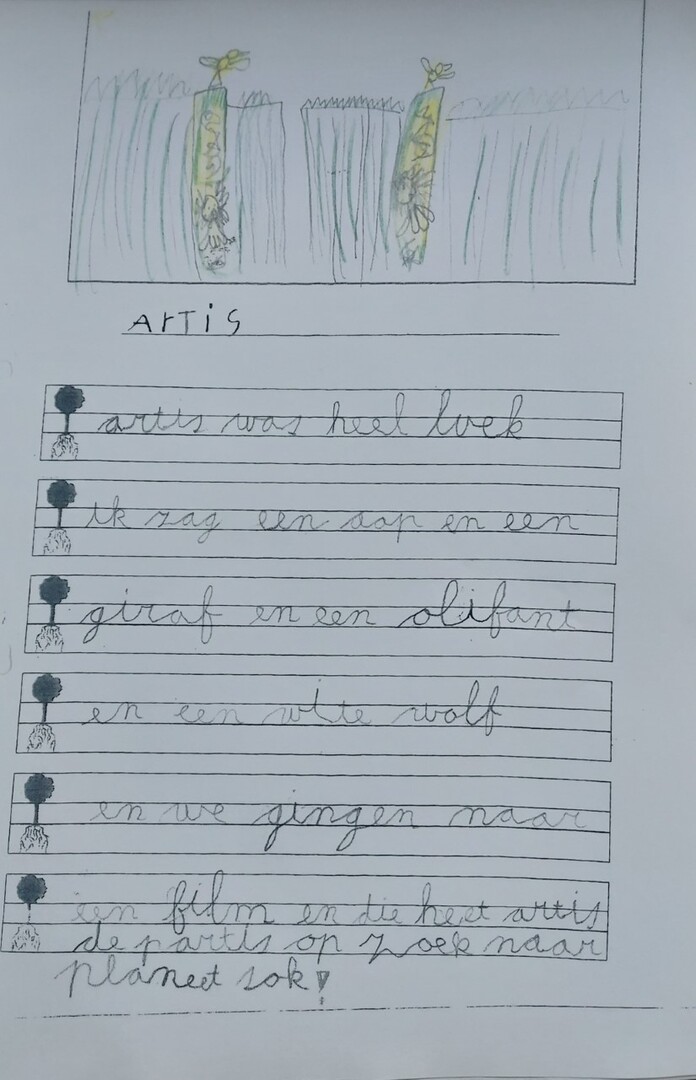 ArTis
artis was heel loek
ik zag een aap en een
giraf en een olifant
en een wite wolf
en we gingen naar
een film en die heet artis
de partis op zoek naar
planeet sok!